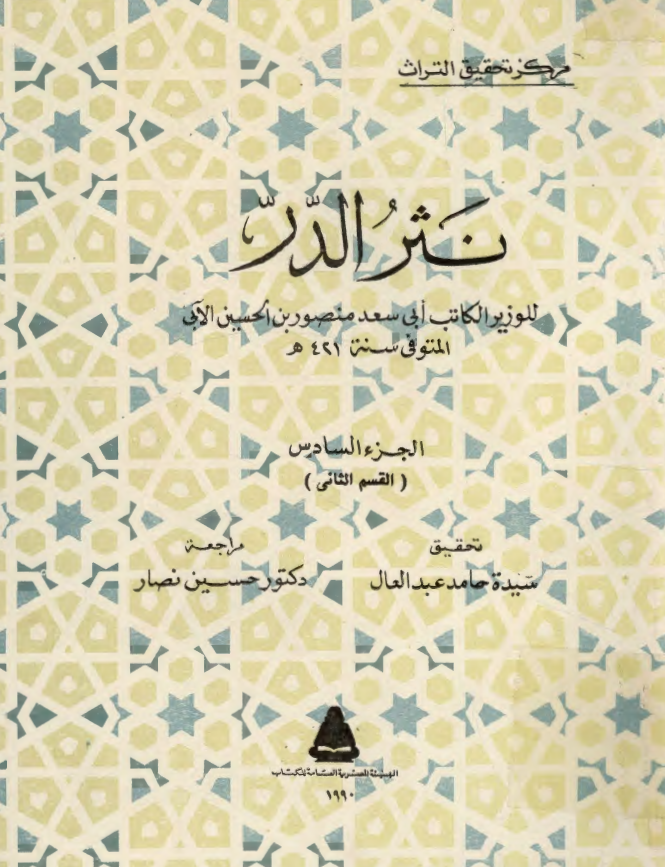 مركز تحقيق التراث
نثرُ الدّرّ
للوزير الكاتب أبى سعد منصور بن الحسين الآبى
المتوفى سنة ٤٢١ هـ
الجزء السادس
( القسم الثانى )
تحقيق
سيدة حامد عبد العال
مراجعة
دكتور حسين نصار
الهيئة المصرية العامة للكتاب
١٩٩٠